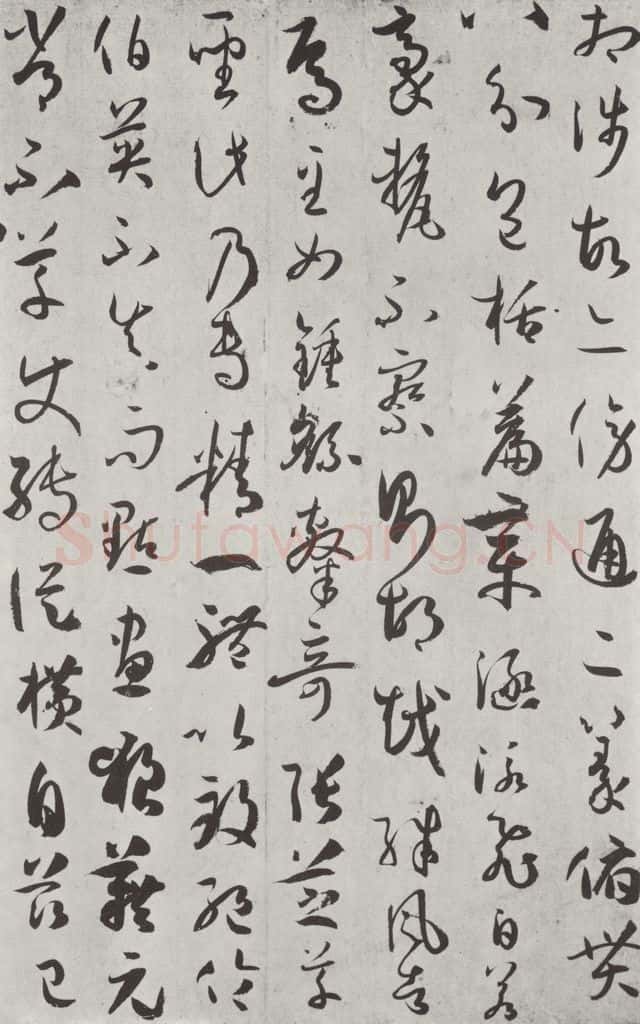 相涉故亦傍通二篆俯貫
八分包括篇章涵泳飛白若
豪釐不察則胡越殊風者
焉至如鍾繇隸奇張芝草
聖此乃專精一體以致絕倫
伯英不真而點畫狼藉元
常不草使轉縱橫自茲已
Shufawang.CN